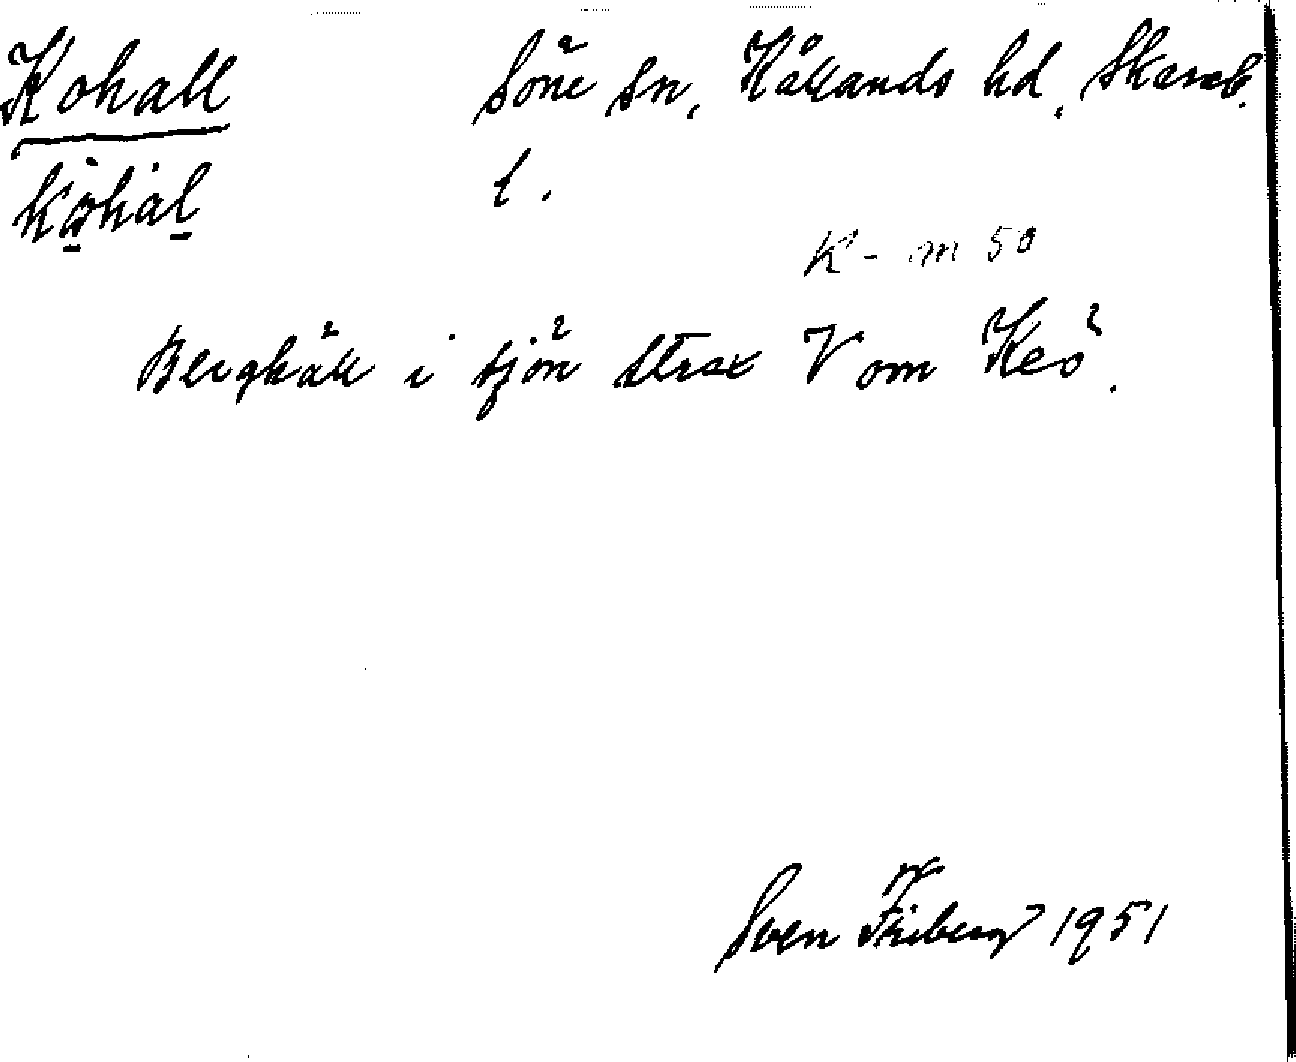 Kohall Söne sn, Kållands hd, Skarab.
l.
kọ̀hàl
K-m 50
Berghäll i sjön strax V om Keö.
Sven Friberg 1951